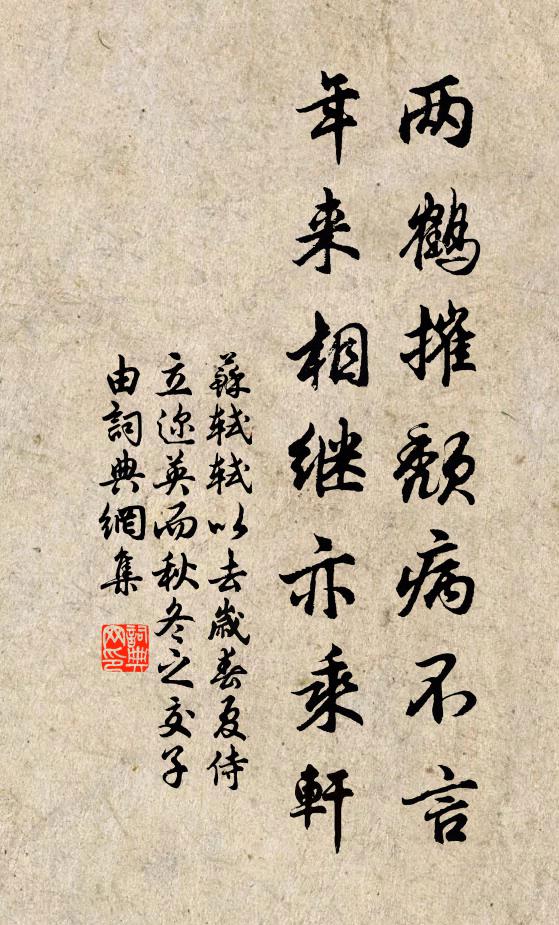 两鹤摧颓病不言
年来相继亦乘軒
蘇軾軾以去歲春夏侍
立迩英而秋冬之交子
由詞典網集
詞典网印